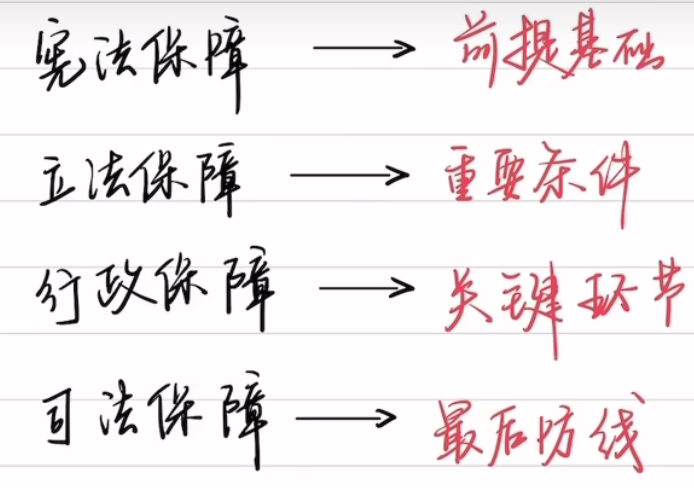 宪法保障 → 前提基础
立法保障 → 重要条件
行政保障 → 关键环节
司法保障 → 最后防线